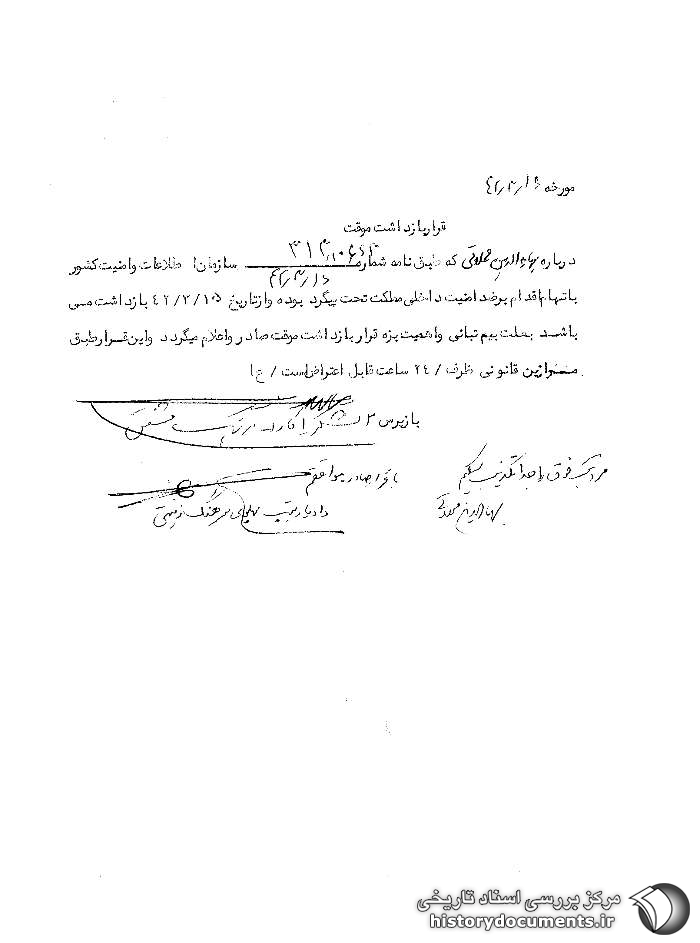 مورخه
قرار بازداشت موقت
درباره بهاءالدین محلاتی که طبق نامه شماره سازمان اطلاعات و امنیت کشور
باتهام اقدام بر ضد امنیت داخلی مملکت تحت پیگرد بوده و از تاریخ ۴۲/۳/۱۵ بازداشت می
باشد بعلت بیم تبانی و اهمیت بزه قرار بازداشت موقت صادر و اعلام میگردد و این قرار طبق
موازین قانونی ظرف / ۲۴ ساعت قابل اعتراض است / ع ا
بازپرس ۲
با قرار صادره موافقم
مراتب فوق را جدا تکذیب میکنم
بهاءالدین محلاتی
مرکز بررسی اسناد تاریخی
historydocuments.ir